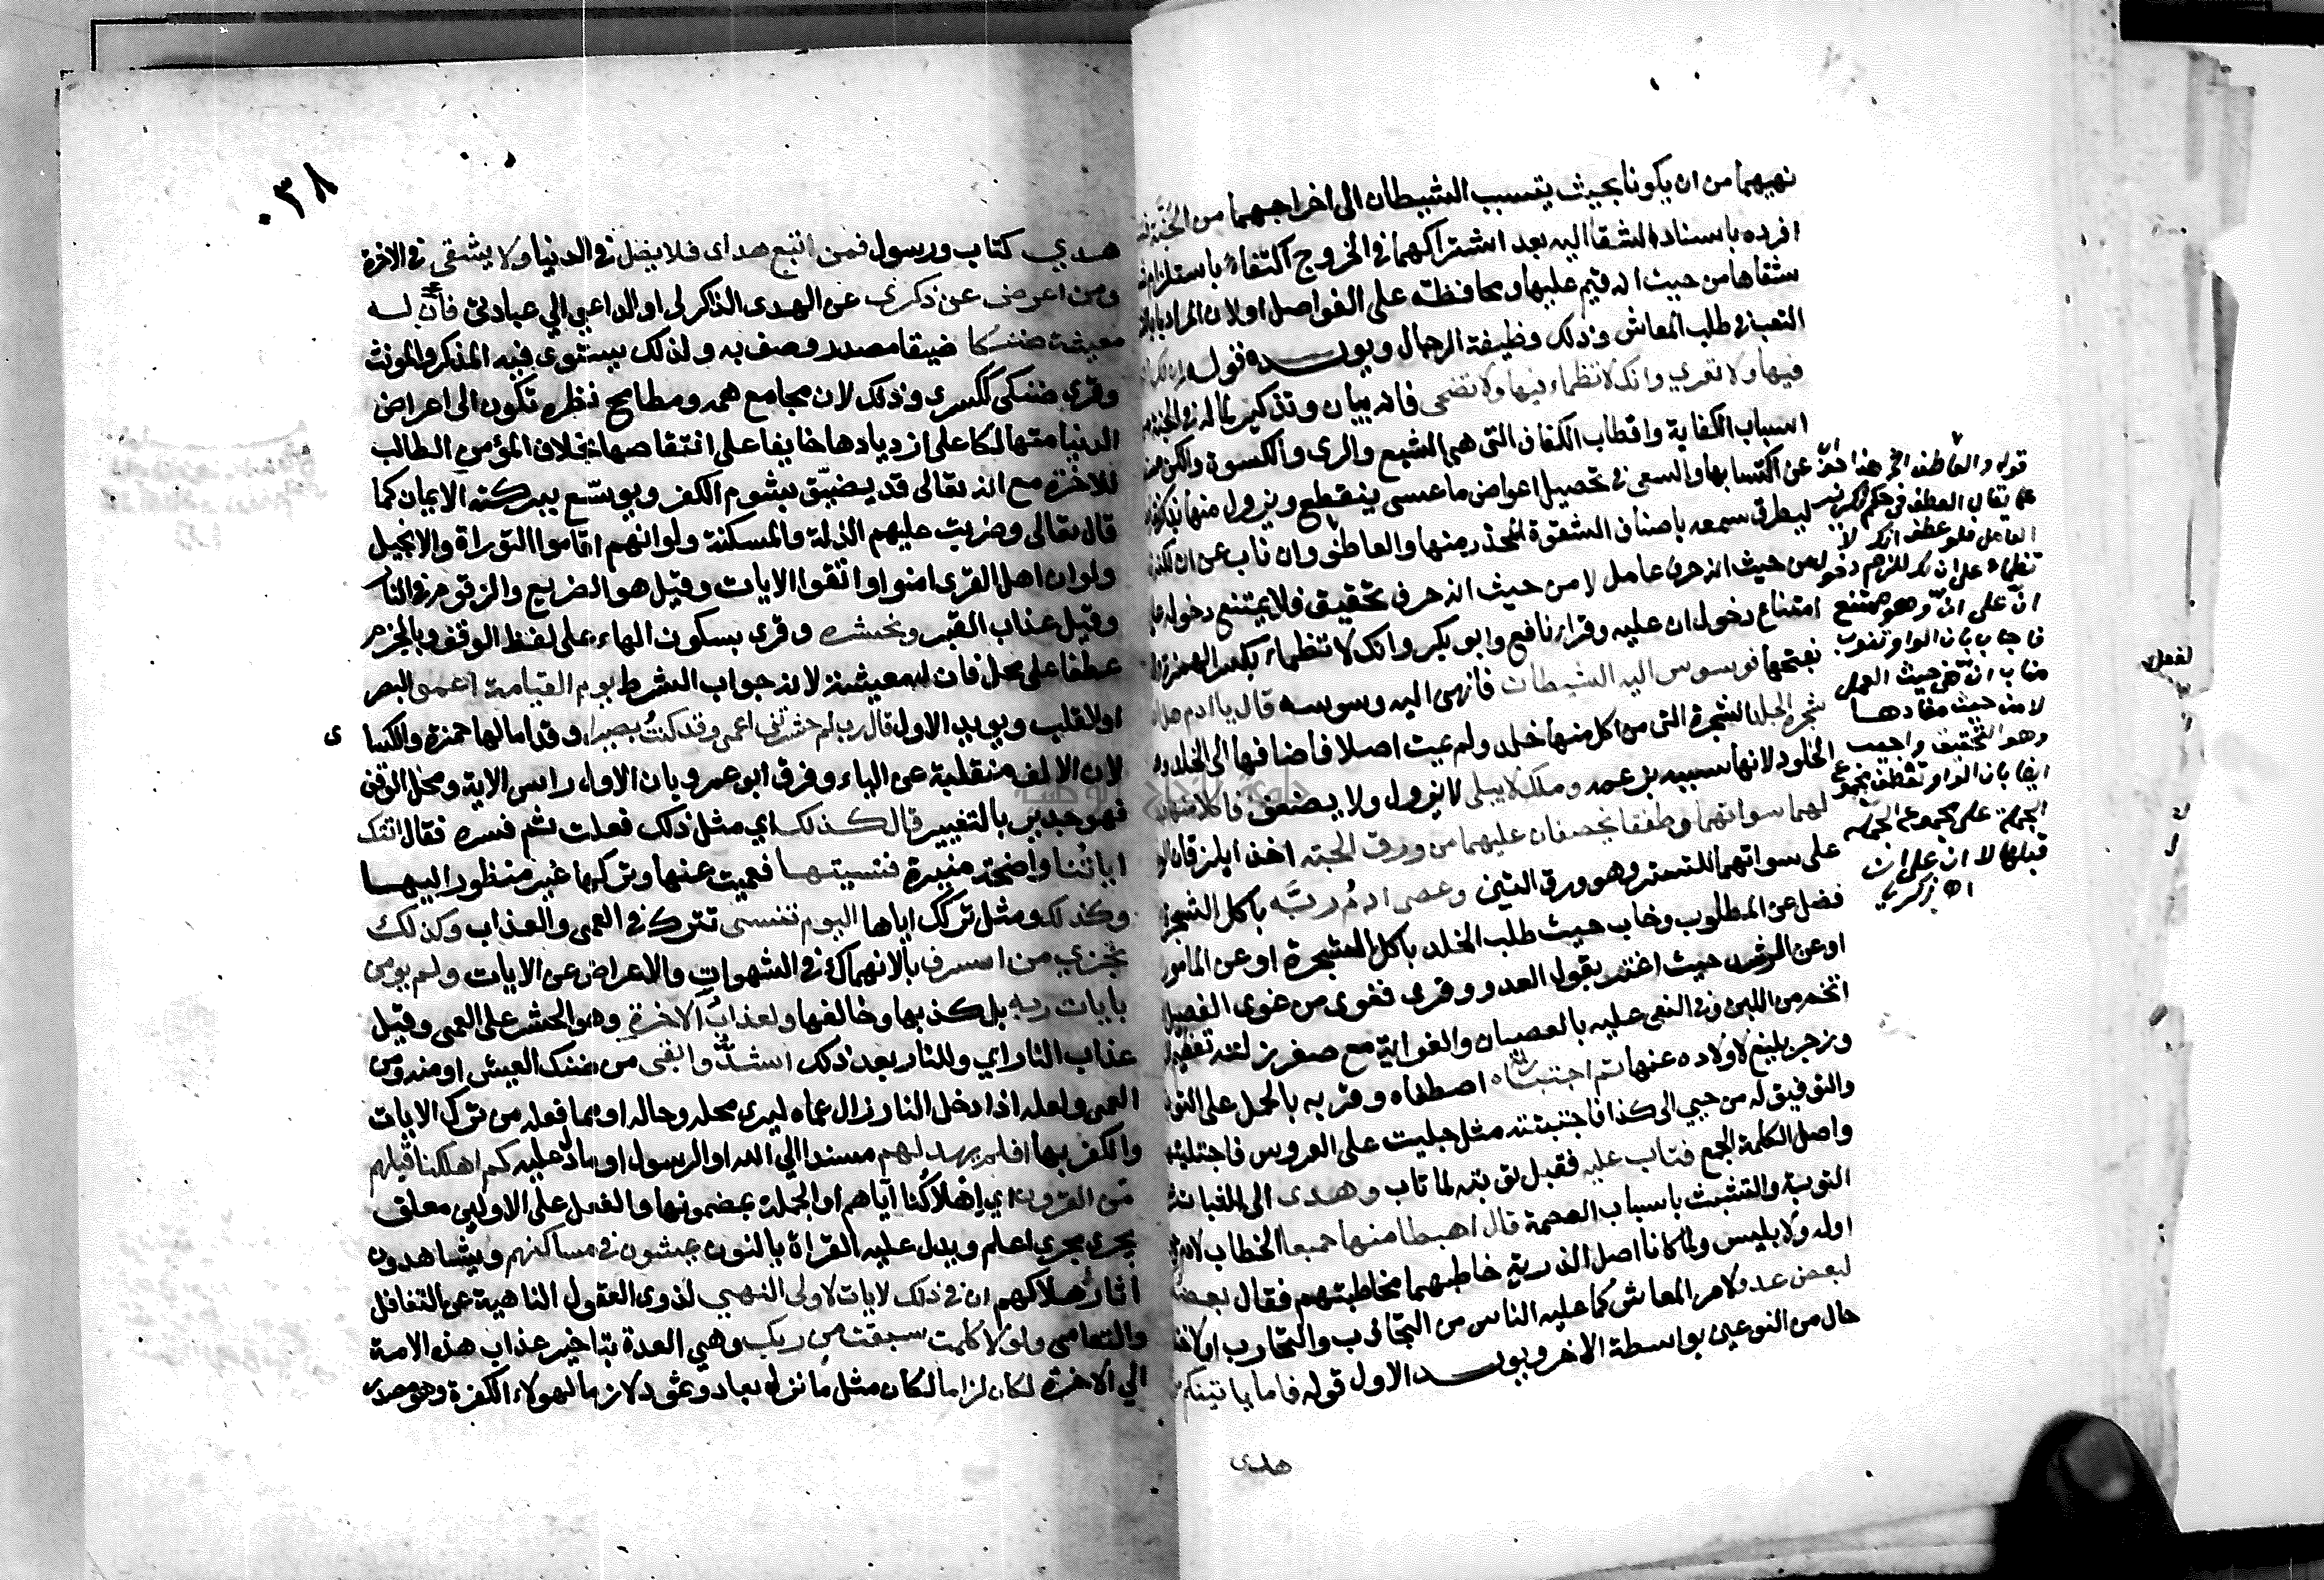 نهيهما من ان يكونا بحيث يتسبب الشيطان الى اخراجهما من الجنة
افرده باسناد الشقا اليه بعد اشتراكهما في الخروج اكتفاء باستلزام
شقاها من حيث انه قيم عليها ومحافظة على الفواصل او لان المراد
التعب في طلب المعاش وذلك وظيفة الرجال ويويده قوله
فيها ولا تعري وانك لا تظماء فيها ولا تضحى فانه بيان وتذكير لما له في الجنة
اسباب الكفاية واقطاب الكفاف التي هي الشبع والرى والكسوة والكن
عن اكتسابها والسعى في تحصيل اعواض ما عسى ينقطع ويزول منها
ليطرق سمعه باصناف الشقوة المحذر منها والعاطف وان ناب عن ان
من حيث انه حرف عامل لا من حيث انه حرف تحقيق فلا يمتنع دخوله
امتناع دخول ان عليه وقراء نافع وابو بكر وانك لا تظماء بكسر الهمزة
بفتحها فوسوس اليه الشيطان فانهى اليه وسوسه قال يا ادم هل
شجرة الخلد الشجرة التي من اكل منها خلد ولم يمت اصلا فاضافها الى الخلد
الخلود لانها سببه بزعمه وملك لا يبلى لا يزول ولا يضعف فاكلا منها
لهما سواتهما وطفقا يخصفان عليهما من ورق الجنة اخذا يلزقان
على سواتهما للتستر وهو ورق التين وعصى ادم ربه باكل الشجرة
فضل عن المطلوب وخاب حيث طلب الخلد باكل الشجرة او عن المامور
او عن الرشد حيث اغتر بقول العدو وقرى فغوى من غوى الفصيل
اتخم من اللبن وفي النعى عليه بالعصيان والغواية مع صغر زلته
وزجر بليغ لاولاده عنها ثم اجتباه اصطفاه وقربه بالحمل على
والتوفيق له من جبي الى كذا فاجتبيته مثل جليت على العروس فاجتليتها
واصل الكلمة الجمع فتاب عليه فقبل توبته لما تاب وهدى الى الثبات
التوبة والتشبث باسباب العصمة قال اهبطا منها جميعا الخطاب لادم
اوله ولابليس ولما كانا اصل الذرية خاطبهما مخاطبتهم فقال بعضكم
لبعض عدو لامر المعاش كما عليه الناس من التجاذب والتحارب او
حال من النوعين بواسطة الاخر ويويد الاول قوله فاما ياتينكم
هدى
قوله والعاطف الخ هذا
تقال العطف في حكم تكرير
العامل فلو عطف انك لا
تظماء على ان لك للزم دخول
ان على ان وهو ممتنع
فاجاب بان الواو تنوب
مناب ان من حيث العمل
لا من حيث مفادها
وهو التحقيق واجيب
ايضا بان الواو تعطف مجموع
الجملة على مجموع الجملة
قبلها لا ان على ان
اه زكريا
٠٣٨
هدي كتاب ورسول فمن اتبع هداى فلا يضل في الدنيا ولا يشقى في الاخرة
ومن اعرض عن ذكري عن الهدى الذاكر لى او الداعي الي عبادتى فان له
معيشة ضنكا ضيقا مصدر وصف به ولذلك يستوى فيه المذكر والمونث
وقرى ضنكى كسكرى وذلك لان مجامع همه ومطامح نظره تكون الى اعراض
الدنيا متهالكا على ازديادها خايفا على انتقاصها بخلاف المؤمن الطالب
للاخرة مع انه تعالى قد يضيق بشوم الكفر ويوسع ببركة الايمان كما
قال تعالى وضربت عليهم الذلة والمسكنة ولو انهم اقاموا التوراة والانجيل
ولو ان اهل القرى امنوا واتقوا الايات وقيل هو الضريع والزقوم في النار
وقيل عذاب القبر ونحشره وقرى بسكون الهاء على لفظ الوقف وبالجزم
عطفا على محل فان له معيشة لانه جواب الشرط يوم القيامة اعمى البصر
او القلب ويويد الاول قال رب لم حشرتنى اعمى وقد كنت بصيرا وقد امالها حمزة والكسا
ى
لان الالف منقلبة عن الياء وفرق ابو عمرو بان الاول راس الاية ومحل الوقف
فهو جدير بالتغيير قال كذلك اي مثل ذلك فعلت ثم فسره فقال اتتك
اياتنا واضحة منيرة فنسيتها فعميت عنها وتركها غير منظور اليها
وكذلك ومثل تركك اياها اليوم تنسى تترك في العمى والعذاب وكذلك
نجزي من اسرف بالانهماك في الشهوات والاعراض عن الايات ولم يومن
بايات ربه بل كذبها وخالفها ولعذاب الاخرة وهو الحشر على العمى وقيل
عذاب النار اي وللنار بعد ذلك اشد وابقى من ضنك العيش او منه ومن
العمى ولعله اذا دخل النار زال عماه ليرى محله وحاله او مما فعله من ترك الايات
والكفر بها افلم يهد لهم مسند الي الله او الرسول او ما دل عليه كم اهلكنا قبلهم
من القرون اي اهلاكنا اياهم او الجملة بمضمونها والفعل على الاولين معلق
يجري مجري اعلم ويدل عليه القراة بالنون يمشون في مساكنهم ويشاهدون
اثار هلاكهم ان في ذلك لايات لاولى النهي لذوى العقول الناهية عن التغافل
والتعامى ولولا كلمت سبقت من ربك وهي العدة بتاخير عذاب هذه الامة
الي الاخرة لكان لزاما لكان مثل ما نزل بعاد وثمود لازما لهولاء الكفرة وهو مصدر